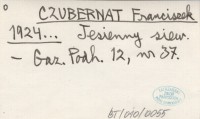 CZUBERNAT Franciszek
1924... Jesienny siew.
– Gaz. Podh. 12, nr 37.
BT/010/0055